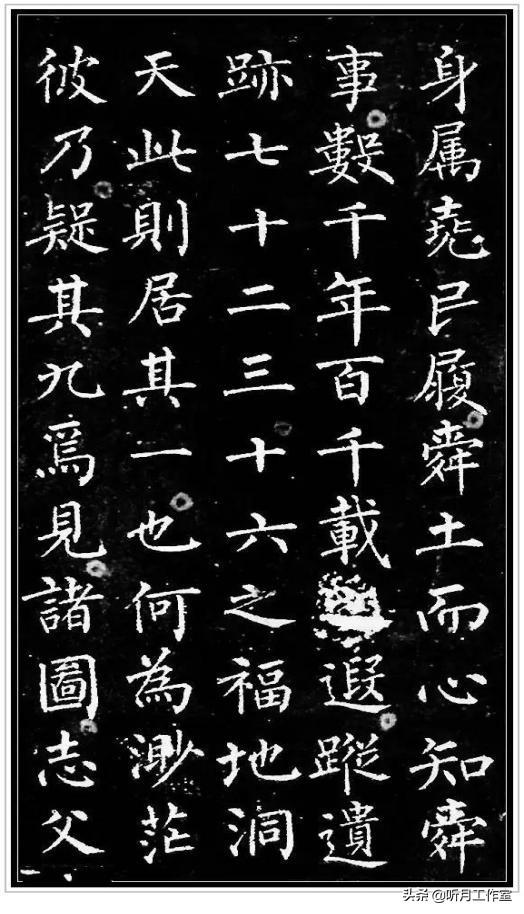 身属堯民履舜土而心知舜
事數千年百千載遐蹤遺
跡七十二三十六之福地洞
天此則居其一也何為渺茫
彼乃疑其九焉見諸圖志父
头条 @听月工作室